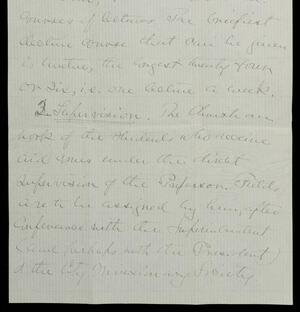 courses of lectures. The briefest
lecture course that can be given
is twelve, the longest twenty four
or six, i.e. one lecture a week.
3. Supervision. The Church
work of the students who receive
aid comes under the direct
supervision of the Professor. Fields
are to be assigned by him, after
conference with the Superintendent
(and, perhaps with the President)
of the City Missionary Society